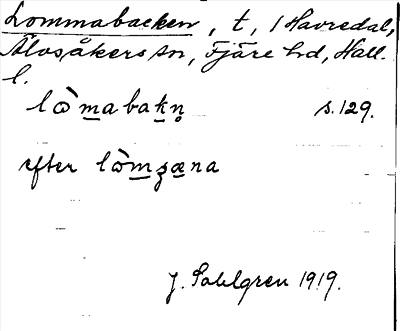 Lommabacken, t, i Havredal,
Älvsåkers sn, Fjäre hd, Hall.
l.
lòmabakn̥ s. 129.
efter lòmʒæna
J. Sahlgren 1919.